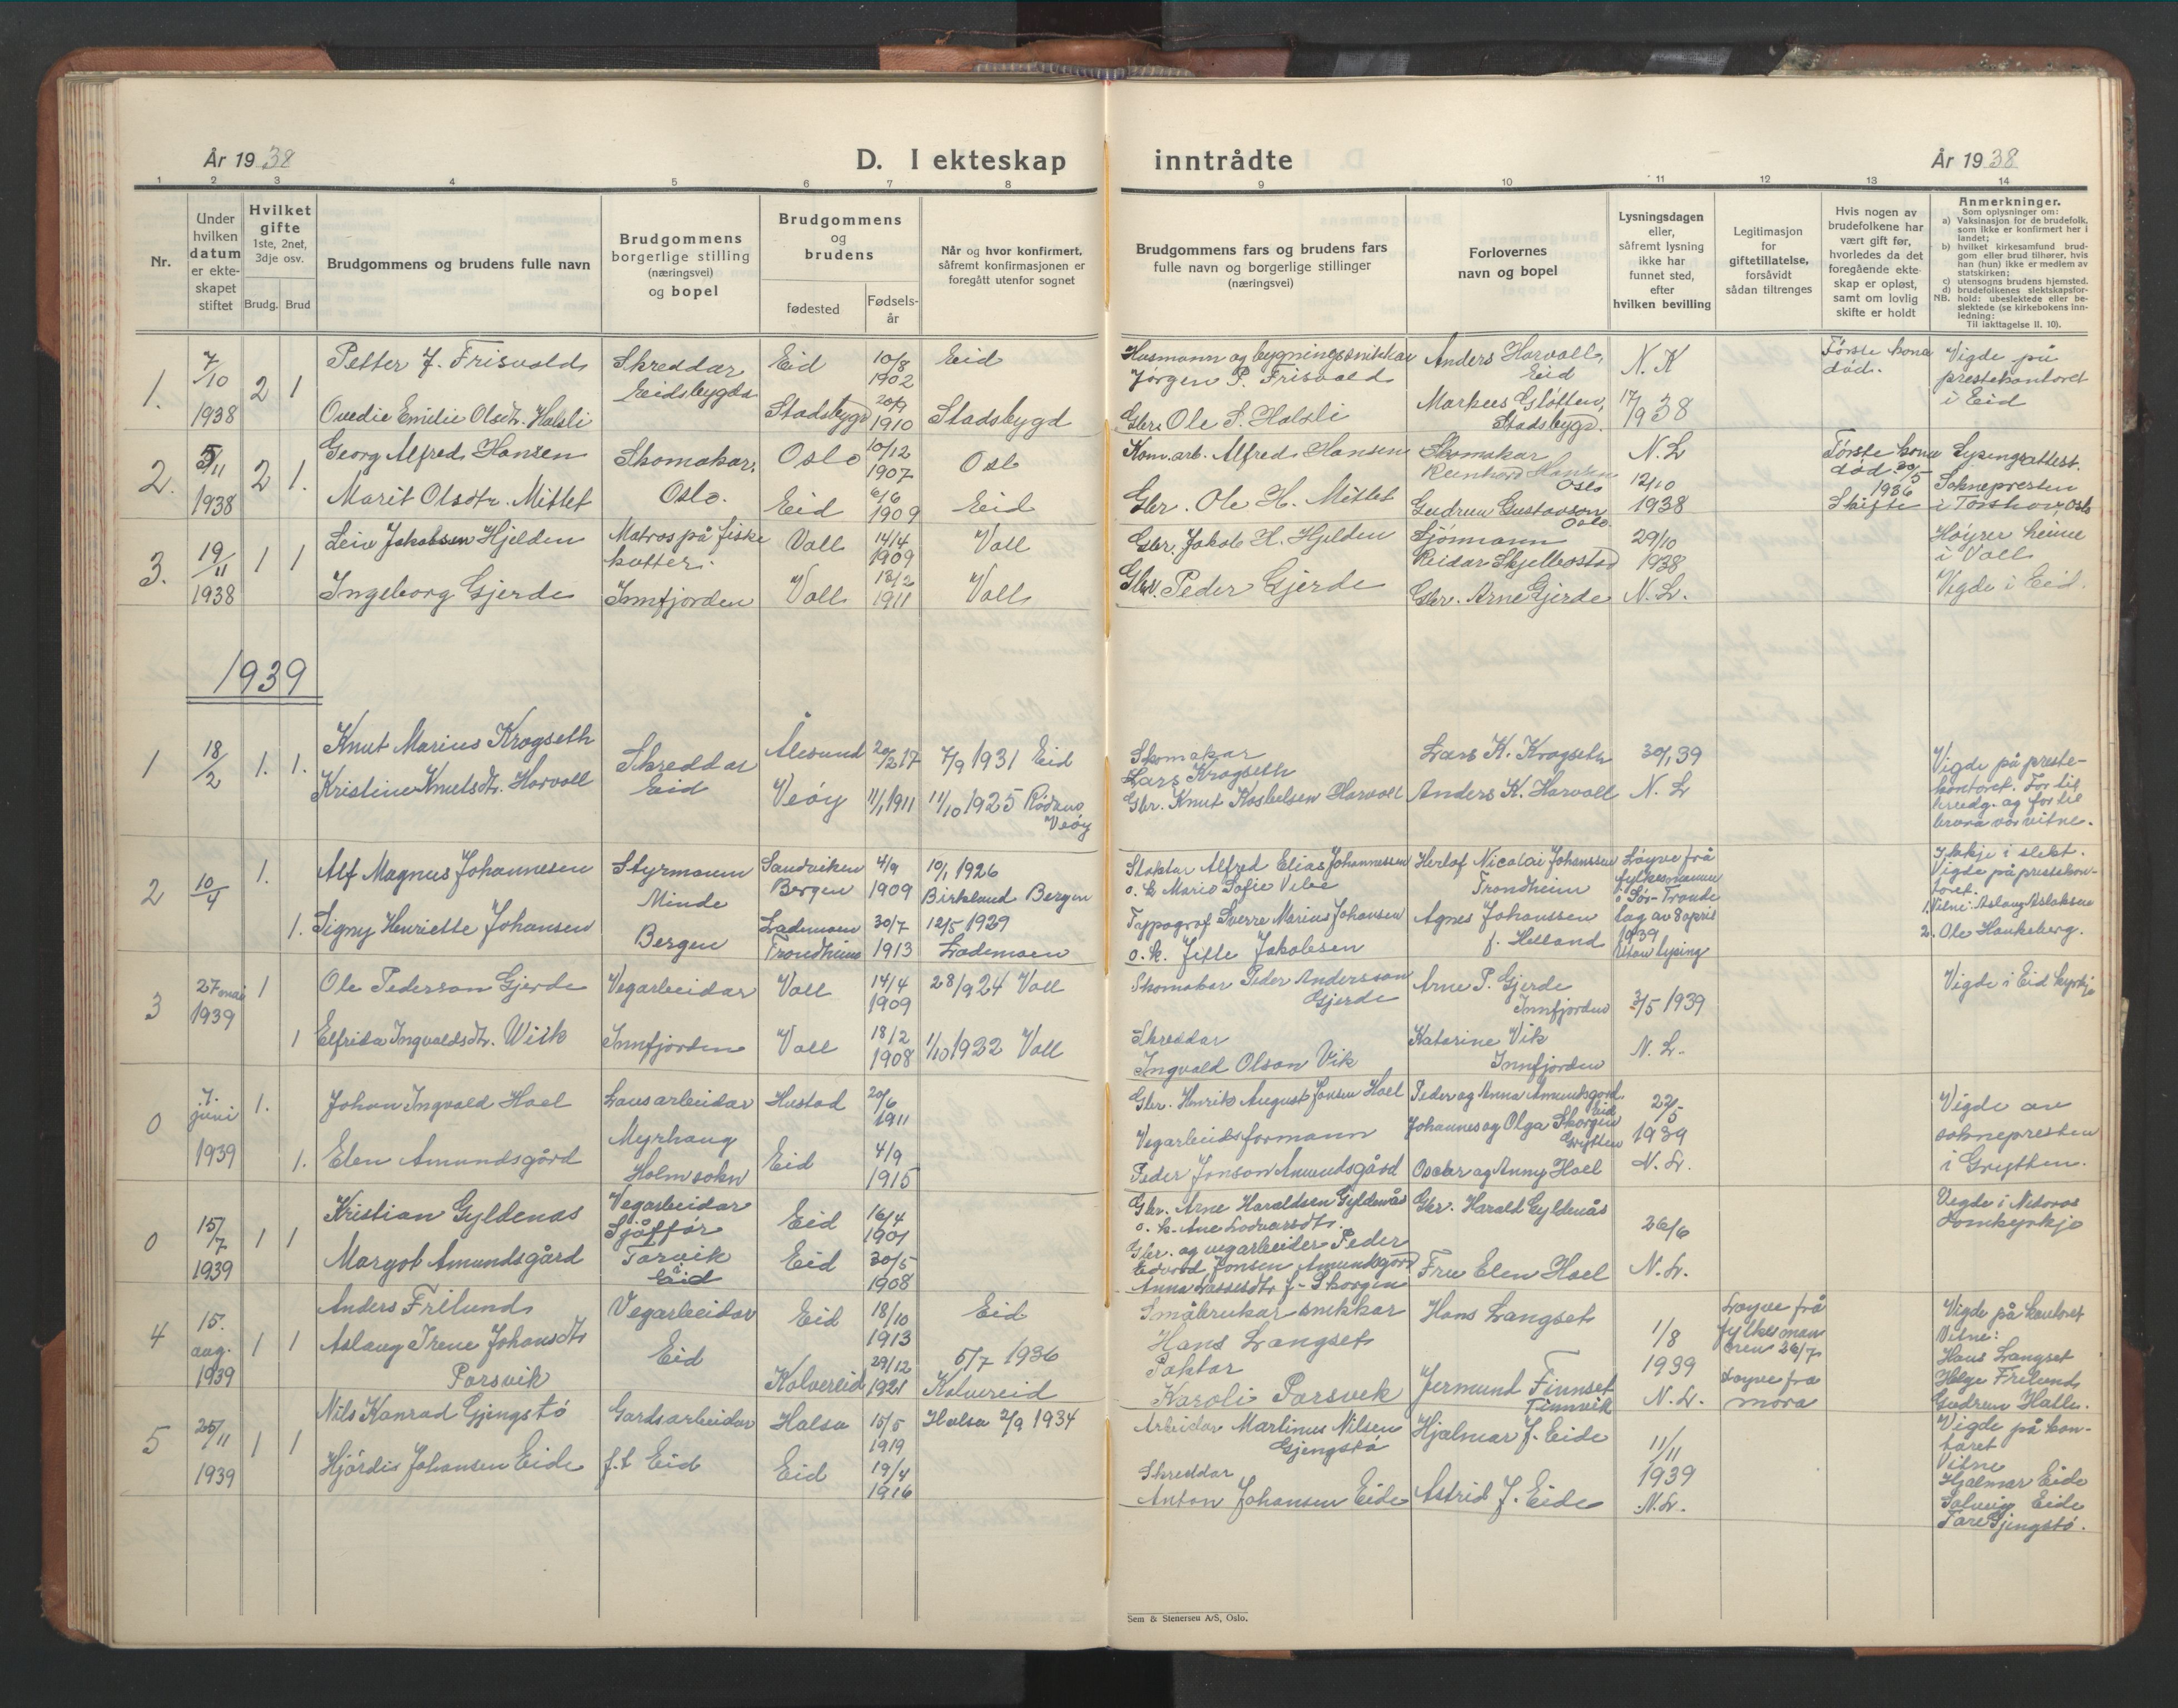 År 1938
D. I ekteskap
inntrådte
År 1938
1 2 3 4 5 6 7 8 9 10 11 12 13 14
Nr.
Under
hvilken
datum
er ekte-
skapet
stiftet
Hvilket
gifte
1ste, 2net,
3dje osv.
Brudg. Brud
Brudgommens og brudens fulle navn
Brudgommens
borgerlige stilling
(næringsvei)
og bopel
Brudgommens
og
brudens
fødested
Fødsels-
år
Når og hvor konfirmert,
såfremt konfirmasjonen er
foregått utenfor sognet
Brudgommens fars og brudens fars
fulle navn og borgerlige stillinger
(næringsvei)
Forlovernes
navn og bopel
Lysningsdagen
eller,
såfremt lysning
ikke har
funnet sted,
efter
hvilken bevilling
Legitimasjon
for
giftetillatelse,
forsåvidt
sådan tiltrenges
Hvis nogen av
brudefolkene har
vært gift før,
hvorledes da det
foregående ekte-
skap er opløst,
samt om lovlig
skifte er holdt
Anmerkninger.
Som oplysninger om:
a) Vaksinasjon for de brudefolk,
som ikke er konfirmert her i
landet;
b) hvilket kirkesamfund brud-
gom eller brud tilhører, hvis
han (hun) ikke er medlem av
statskirken;
c) utensogns brudens hjemsted.
d) brudefolkenes slektskapsfor-
NB. hold: ubeslektede eller be-
slektede (se kirkebokens inn-
ledning:
Til iakttagelse II. 10).
1. 7/10 1938 2 1
Petter J. Frisvold
Skreddar
Eidsbygda
Eid
10/8
1902
Eid
Husmann og bygningssnikkar
Jørgen P. Frisvold
Anders Horvoll,
Eid
N. K
Første kona
død.
Vigde på
prestekontoret
i Eid
Ovedie Emilie Olsdtr. Halsli
Stadsbygd
1910
Stadsbygd
Gbr. Ole S. Halsli
Markus Gløtten,
Stadsbygd.
17/9 38
2. 5/11 1938 2 1.
Georg Alfred Hansen
Skomakar,
Oslo.
Oslo
10/12
1907
Oslo
Kom. arb. Alfred Hansen
Skomakar
Reinhard Hansen
Oslo
N. L
Første kona
død 29/5
1936
Skifte
Lysingsattest.
Soknepresten
i Torshov, Oslo
Marit Olsdtr. Mittet
Eid
6/6
1909
Eid
Gbr. Ole H. Mittet
Gudrun Gustavson
Oslo
12/10
1938
3. 19/11 1938 1 1
Leiv Jakobsen Hjelden
Matros på fiske
kutter.
Voll
14/4
1909
Voll
Gbr. Jakob H. Hjelden
Sjömann
Reidar Skjelbostad
29/10
1938
Høyrer heime
i Voll
Ingeborg Gjerde
Innfjorden
Voll
18/2
1911
Voll
Gbr. Peder Gjerde
Gbr. Arne Gjerde
N. L.
Vigde i Eid.
1939
1 18/2 1. 1.
Knut Marius Krogseth
Skreddar
Eid
Ålesund
20/2 17
7/9 1931 Eid
Skomakar
Lars Krogseth
Lars K. Krogseth
30/1 39
Vigde på preste-
kontoret. Far til
brudg. og far til
brura var vitne.
Kristine Knutsdtr. Horvoll
Veøy
11/1 1911
11/10 1925 Rødven
Veøy
Gbr. Knut Kosbelsen Horvoll
Anders K. Horvoll
N. L
2 10/4 1.
Alf Magnus Johannesen
Styrmann
Minde
Bergen
Sandviken
Bergen
4/9
1909
10/1 1926
Birkeland Bergen
Alfred Elias Johannessen
o. k. Marie Sofie Vebe
Herlof Nicolai Johanssen
Trondheim
Løyve frå
fylkesmannen
i Sør-Trønde
lag av 8 april
1939
Utan lysing
Ikkje i slekt.
Vigde på prestekon-
toret.
1. Vitne: Aslaug Aslaksen
2. Ole Haukeberg.
1. Signy Henriette Johansen
Lademoen
Trondheim
30/7
1913
12/5 1929
Lademoen
Typograf Sverre Marius Johansen
o. k. Jette Jakobsen
Agnes Johanssen
f. Helland
3 27 mai 1939 1
Ole Pederson Gjerde
Vegarbeidar
Voll
14/4
1909
28/9 24 Voll
Skomakar Peder Andersson
Gjerde
Arne P. Gjerde
Innfjorden
3/5 1939
Vigde i Eid kyrkje
1 Elfrida Ingvaldsdtr. Wiik
Innfjorden
Voll
18/2
1908
1/10 1922 Voll
Skreddar
Ingvald Olson Vik
Katarine Vik
Innfjorden
N. L.
0 7. juni 1939 1.
Johan Ingvald Hoel
Lausarbeidar
Myrhaug
Holm sokn
Hustad
20/6
1911
Gbr. Henrik August Jonsen Hoel
Peder og Anna Amundsgård
Eid
Johannes og Olga Skorgen
Grytten
22/5
1939
N. L.
Vigde av
soknepresten
i Grytten.
1. Elen Amundsgård
Eid
4/9
1915
Vegarbeidsformann
Peder Jonson Amundsgård
Oskar og Anny Hoel
0 15/7 1939 1 1
Kristian Gyldenås
Vegarbeidar
Sjåffør
Torvik
i Eid
Eid
16/4
1901
Gbr. Arne Haraldsen Gyldenås
o. k. Ane Lodvarsdtr.
Gbr. Harald Gyldenås
26/6
Vigde i Nidaros
Domkyrkje
Margot Amundsgård
Eid
30/5
1908
Gbr. og vegarbeider Peder
Edvard Jonsen Amundsgård
Anna Lassesdtr f. Skorgen
Fru Elen Hoel
N. L.
4 15. aug. 1939 1 1
Anders Frilund
Vegarbeidar
Eid
Eid
18/10
1913
Eid
Småbrukar snikkar
Hans Langset
Hans Langset
1/8
1939
N. L.
Løyve frå
fylkesman
nen 26/7
Løyve frå
mora
Vigde på kontoret
Vitne:
Hans Langset
Helge Frilund
Gudrun Halle.
Aslaug Irene Johansdtr
Parsvik
Kolvereid
29/12
1921
5/7 1936
Kolvereid
Paktar
Karoli Parsvik
Jermund Finnset
Finnvik
5 25/11 1939 1 1
Nils Konrad Gjengstø
Gardsarbeidar
f.t. Eid
Halsa
15/5
1919
Halsa 2/9 1934
Arbeidar Martinus Nilsen
Gjengstø
Hjalmar J. Eide
11/11
1939
N. L.
Vigde på kon-
toret
Vitne
Hjalmar Eide
Solveig Eide
Tore Gjengstø.
Hjørdis Johansen Eide
Eid
19/4
1916
Skreddar
Anton Johansen Eide
Astrid J. Eide
Sem & Stenersen A/S, Oslo.